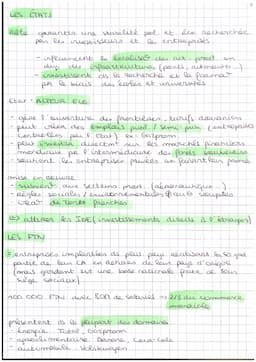 LES ÉTATS
rôle garantir une stabilité pol et éco recherchée
par les investisseurs et les entreprises
- influencent la localisat° des act prod en
dvp des infrastructures (ports, aéroports...)
- investissent ds la recherche et la format°
par le biais des écoles et universités
État = ACTEUR ÉCO
- gère l'ouverture des frontières, tarifs douaniers
- peut créer des emplois publ / semi publ (entreprises
contrôlées par l'État) ex: Gazprom
- peut investir directmt sur les marchés financiers
mondiaux par l'intermédiaire des fonds souverains
- soutient les entreprises privées en favorisant
mise en oeuvre
- soutien aux secteurs prod. (aéronautique...)
- règles sociales / environnementales souples
créat° de zones franches
=> attirer les IDE (investissements directs à l'étranger)
LES FTN
= entreprises implantées ds plsrs pays réalisant
partie de leur CA en dehors de leur pays d'origine
(mais gardent une base nationale
siège sociaux)
100 000 FTN avec 80% de
mondial
présentent ds la plupart des domaines
- énergie Total, Gazprom
- agroalimentaire Danone, Coca-Cola
- automobile Volkswagen